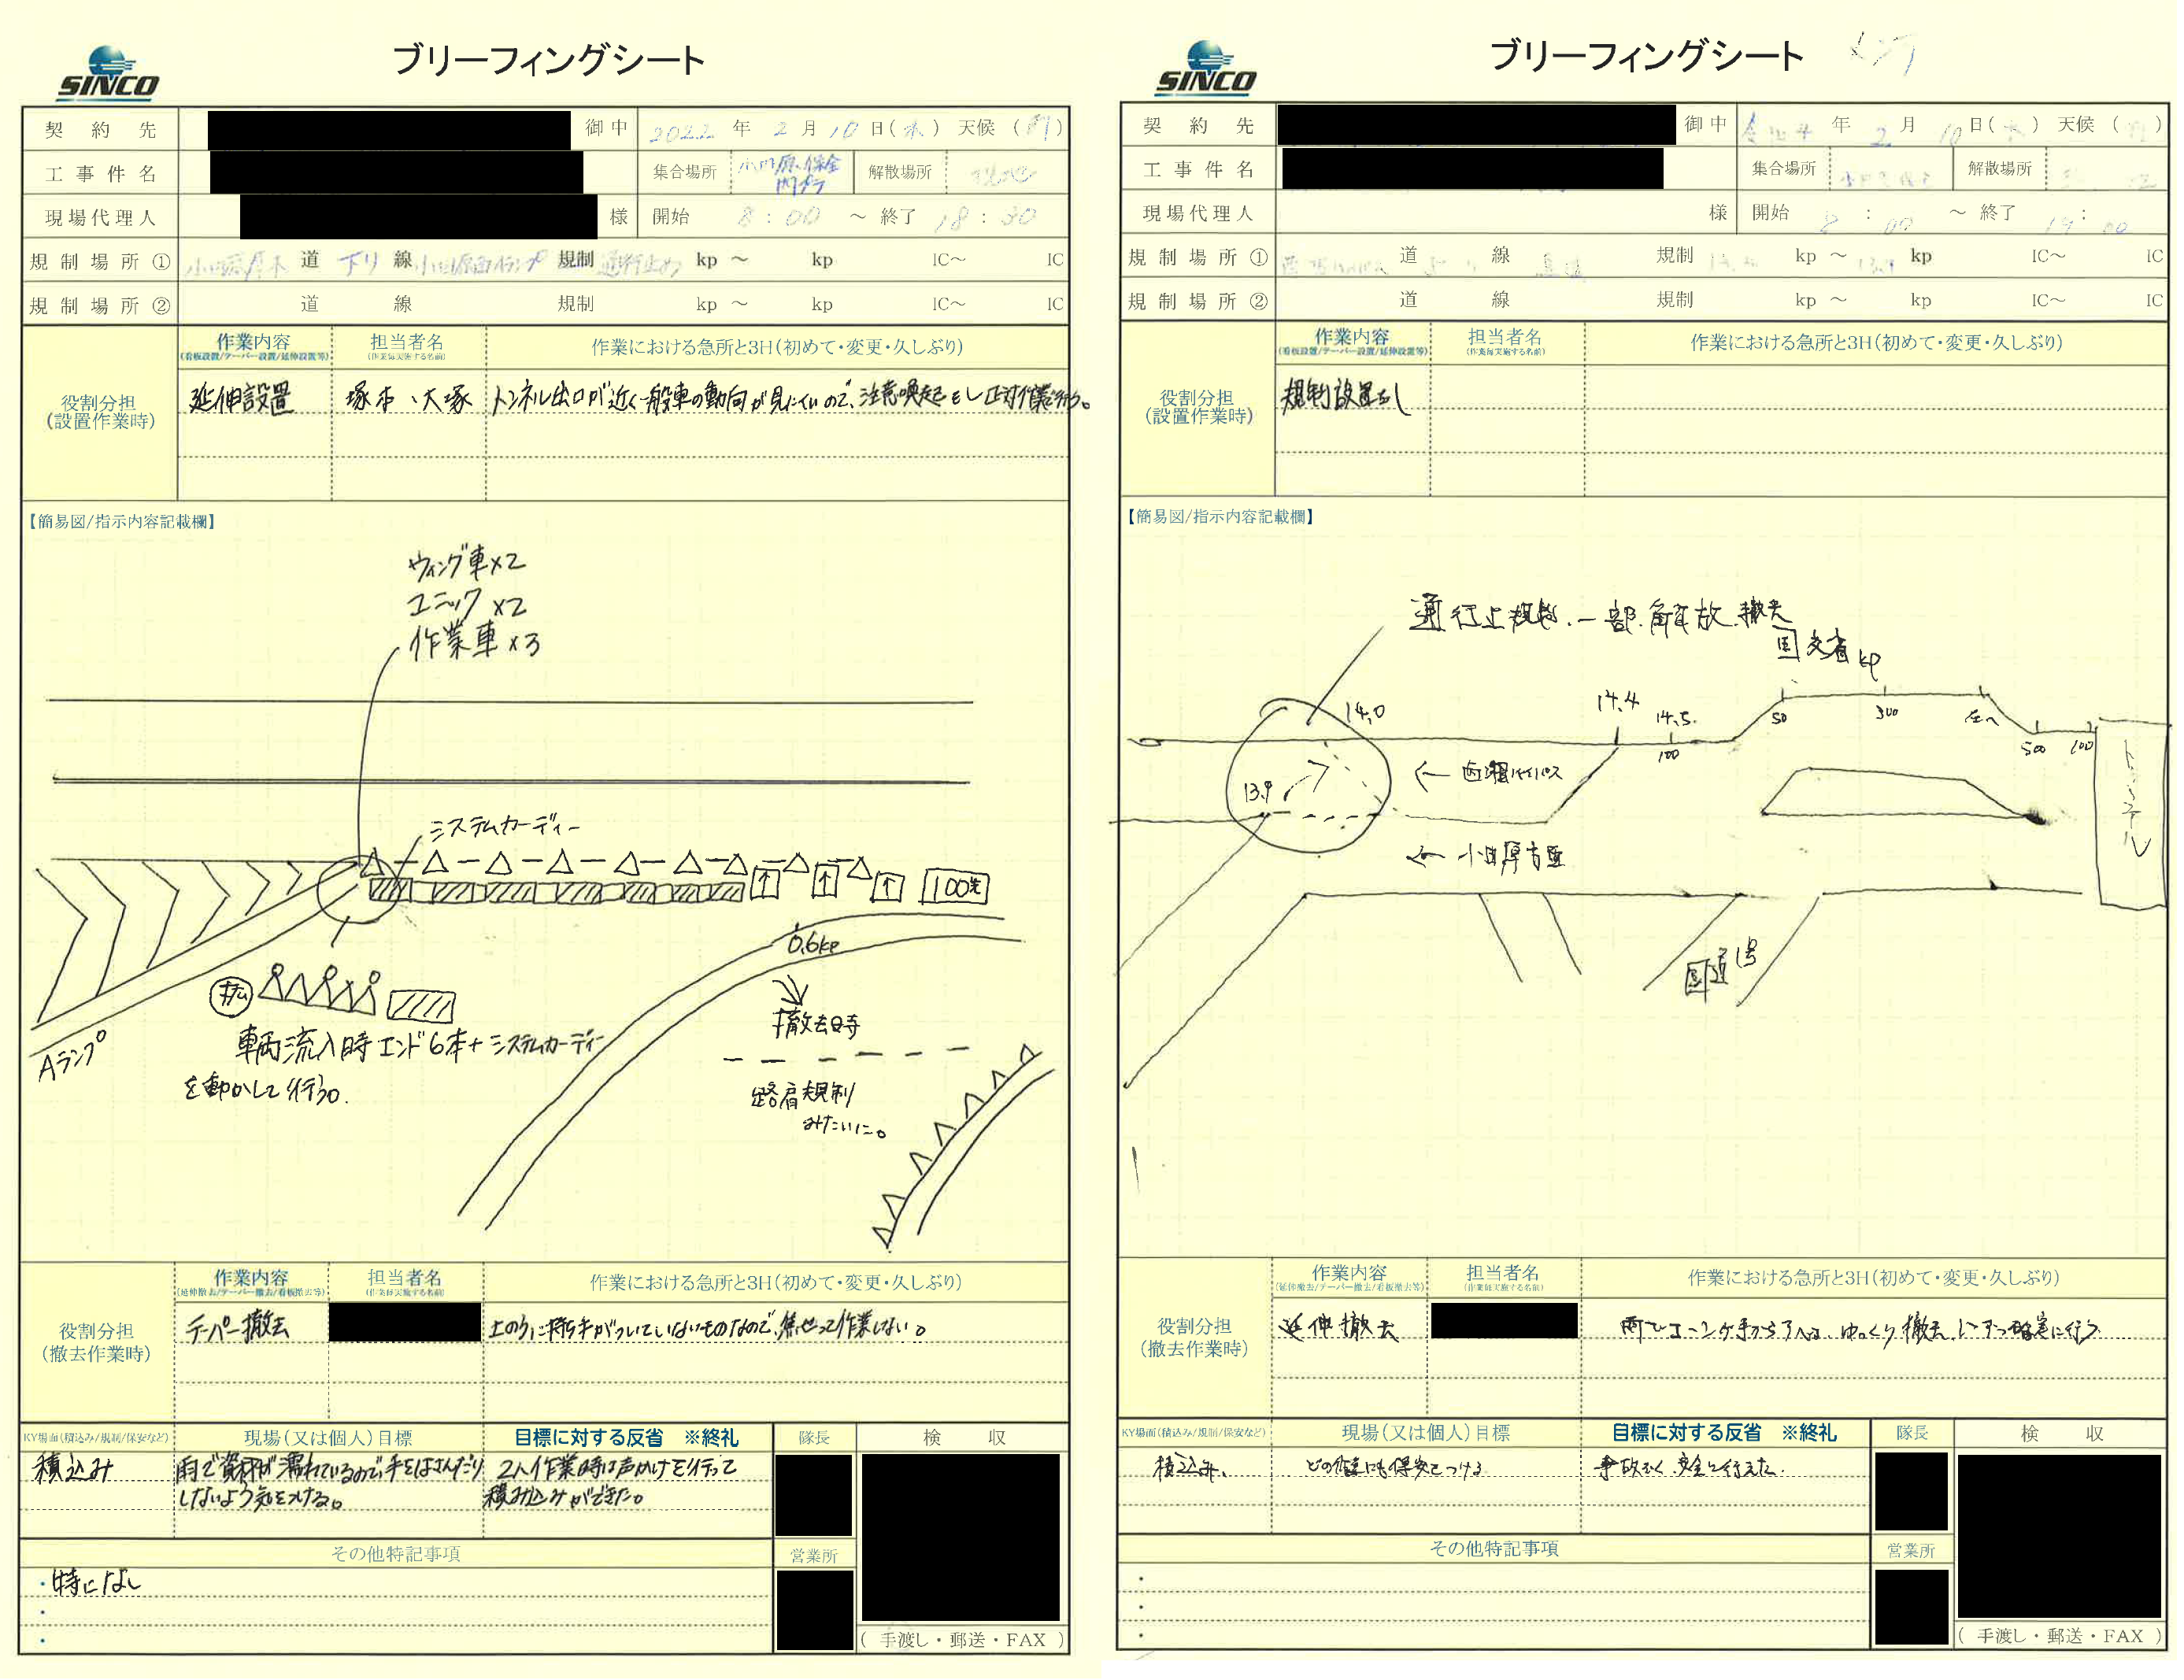 SINCO
ブリーフィングシート
契約先 御中 2022年2月10日(木) 天候(雨)
工事件名 集合場所 小田原保全 内プラ 解散場所 現地
現場代理人 様 開始 8:00 ～ 終了 18:30
規制場所① 小田原厚木 道 下り 線 小田原西Aランプ 規制 通行止め kp ～ kp IC～ IC
規制場所② 道 線 規制 kp ～ kp IC～ IC
役割分担
(設置作業時)
作業内容 担当者名 作業における急所と3H(初めて・変更・久しぶり)
(看板設置/テーパー設置/延伸設置等) (作業毎実施する名前)
延伸設置 塚本、大塚 トンネル出口が近く一般車の動向が見にくいので、注意喚起をし正対作業行う。
【簡易図/指示内容記載欄】
ウィング車×2
ユニック×2
作業車×3
システムカーディー
100先
0.6kp
撤去時
路肩規制
みたいに。
Aランプ
車両流入時エンド6本+システムカーディー
を動かして行う。
役割分担
(撤去作業時)
作業内容 担当者名 作業における急所と3H(初めて・変更・久しぶり)
(延伸撤去/テーパー撤去/看板撤去等) (作業毎実施する名前)
テーパー撤去 土のうに持ち手がついていないものなので、焦って作業しない。
KY場面(積込み/規制/保安など) 現場(又は個人)目標 目標に対する反省 ※終礼 隊長 検収
積込み 雨で資材が濡れているので手をはさんだり 2人作業時は声かけを行って
しないよう気をつける。 積み込みができた。
その他特記事項 営業所
・特になし
・
・
(手渡し・郵送・FAX)
SINCO
ブリーフィングシート
契約先 御中 令和4年2月10日( ) 天候( )
工事件名 集合場所 解散場所
現場代理人 様 開始 8:00 ～ 終了 19:00
規制場所① 道 線 規制 kp ～ 13.9 kp IC～ IC
規制場所② 道 線 規制 kp ～ kp IC～ IC
役割分担
(設置作業時)
作業内容 担当者名 作業における急所と3H(初めて・変更・久しぶり)
(看板設置/テーパー設置/延伸設置等) (作業毎実施する名前)
規制設置なし
【簡易図/指示内容記載欄】
通行止規制、一部解放、撤去
国交省kp
14.0
14.4
14.5
100
50
300
500
100
トンネル
13.9
← 西湘バイパス
← 小田原方面
国道1号
役割分担
(撤去作業時)
作業内容 担当者名 作業における急所と3H(初めて・変更・久しぶり)
(延伸撤去/テーパー撤去/看板撤去等) (作業毎実施する名前)
延伸撤去 ゆっくり撤去、1つずつ確実に行う
KY場面(積込み/規制/保安など) 現場(又は個人)目標 目標に対する反省 ※終礼 隊長 検収
積込み、 事故なく、安全に行えた。
その他特記事項 営業所
・
・
・
(手渡し・郵送・FAX)